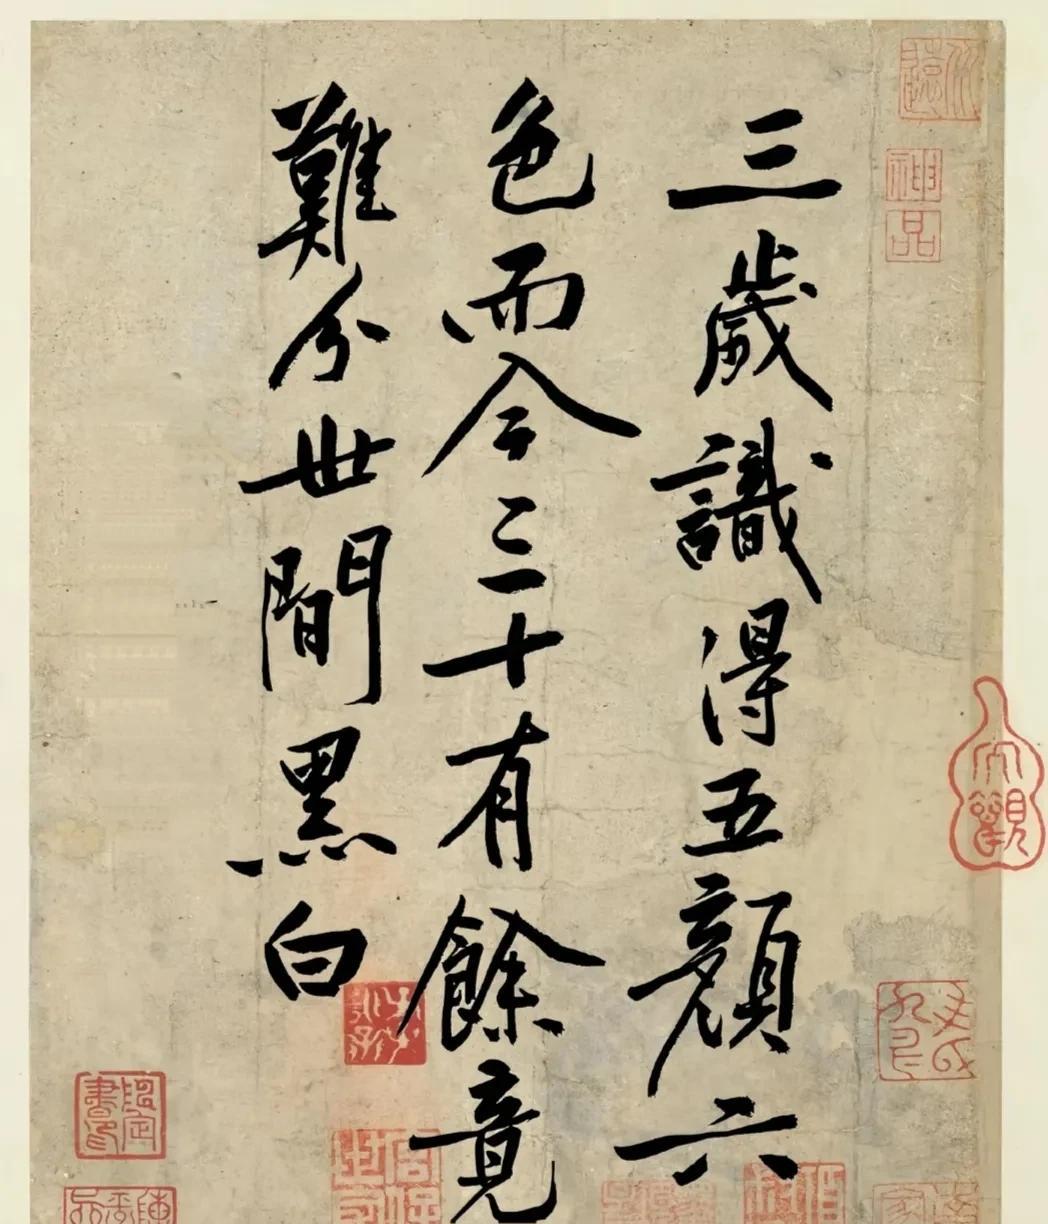 三歲識得五顏六
色而今二十有餘竟
難分世間黑白
神品
大觀